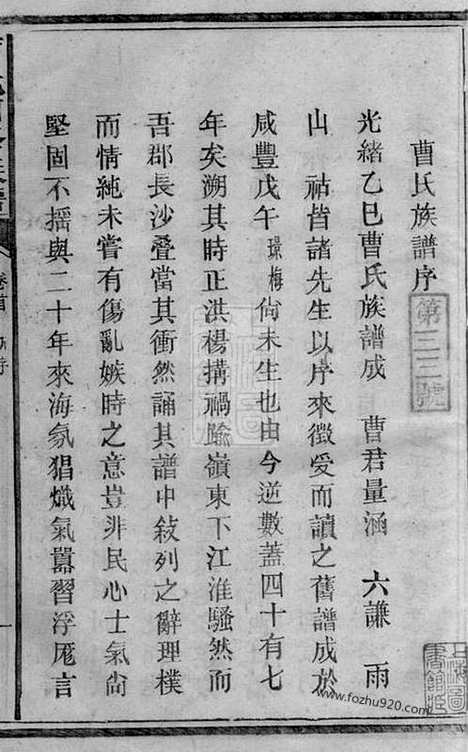 曹氏族譜序
第三三號
光緒乙巳曹氏族譜成 曹君量涵 六謙 雨
山 祜皆諸先生以序來徵爰而讀之舊譜成於
咸豐戊午璟梅尙未生也由今逆數蓋四十有七
年矣溯其時正洪楊搆禍踰嶺東下江淮騷然而
吾郡長沙叠當其衝然誦其譜中敍列之辭理樸
而情純未嘗有傷亂嫉時之意豈非民心士氣尙
堅固不摇與二十年來海氛猖熾氣囂習浮厖言
卷首
上海圖
書館藏
www.fozhu920.com